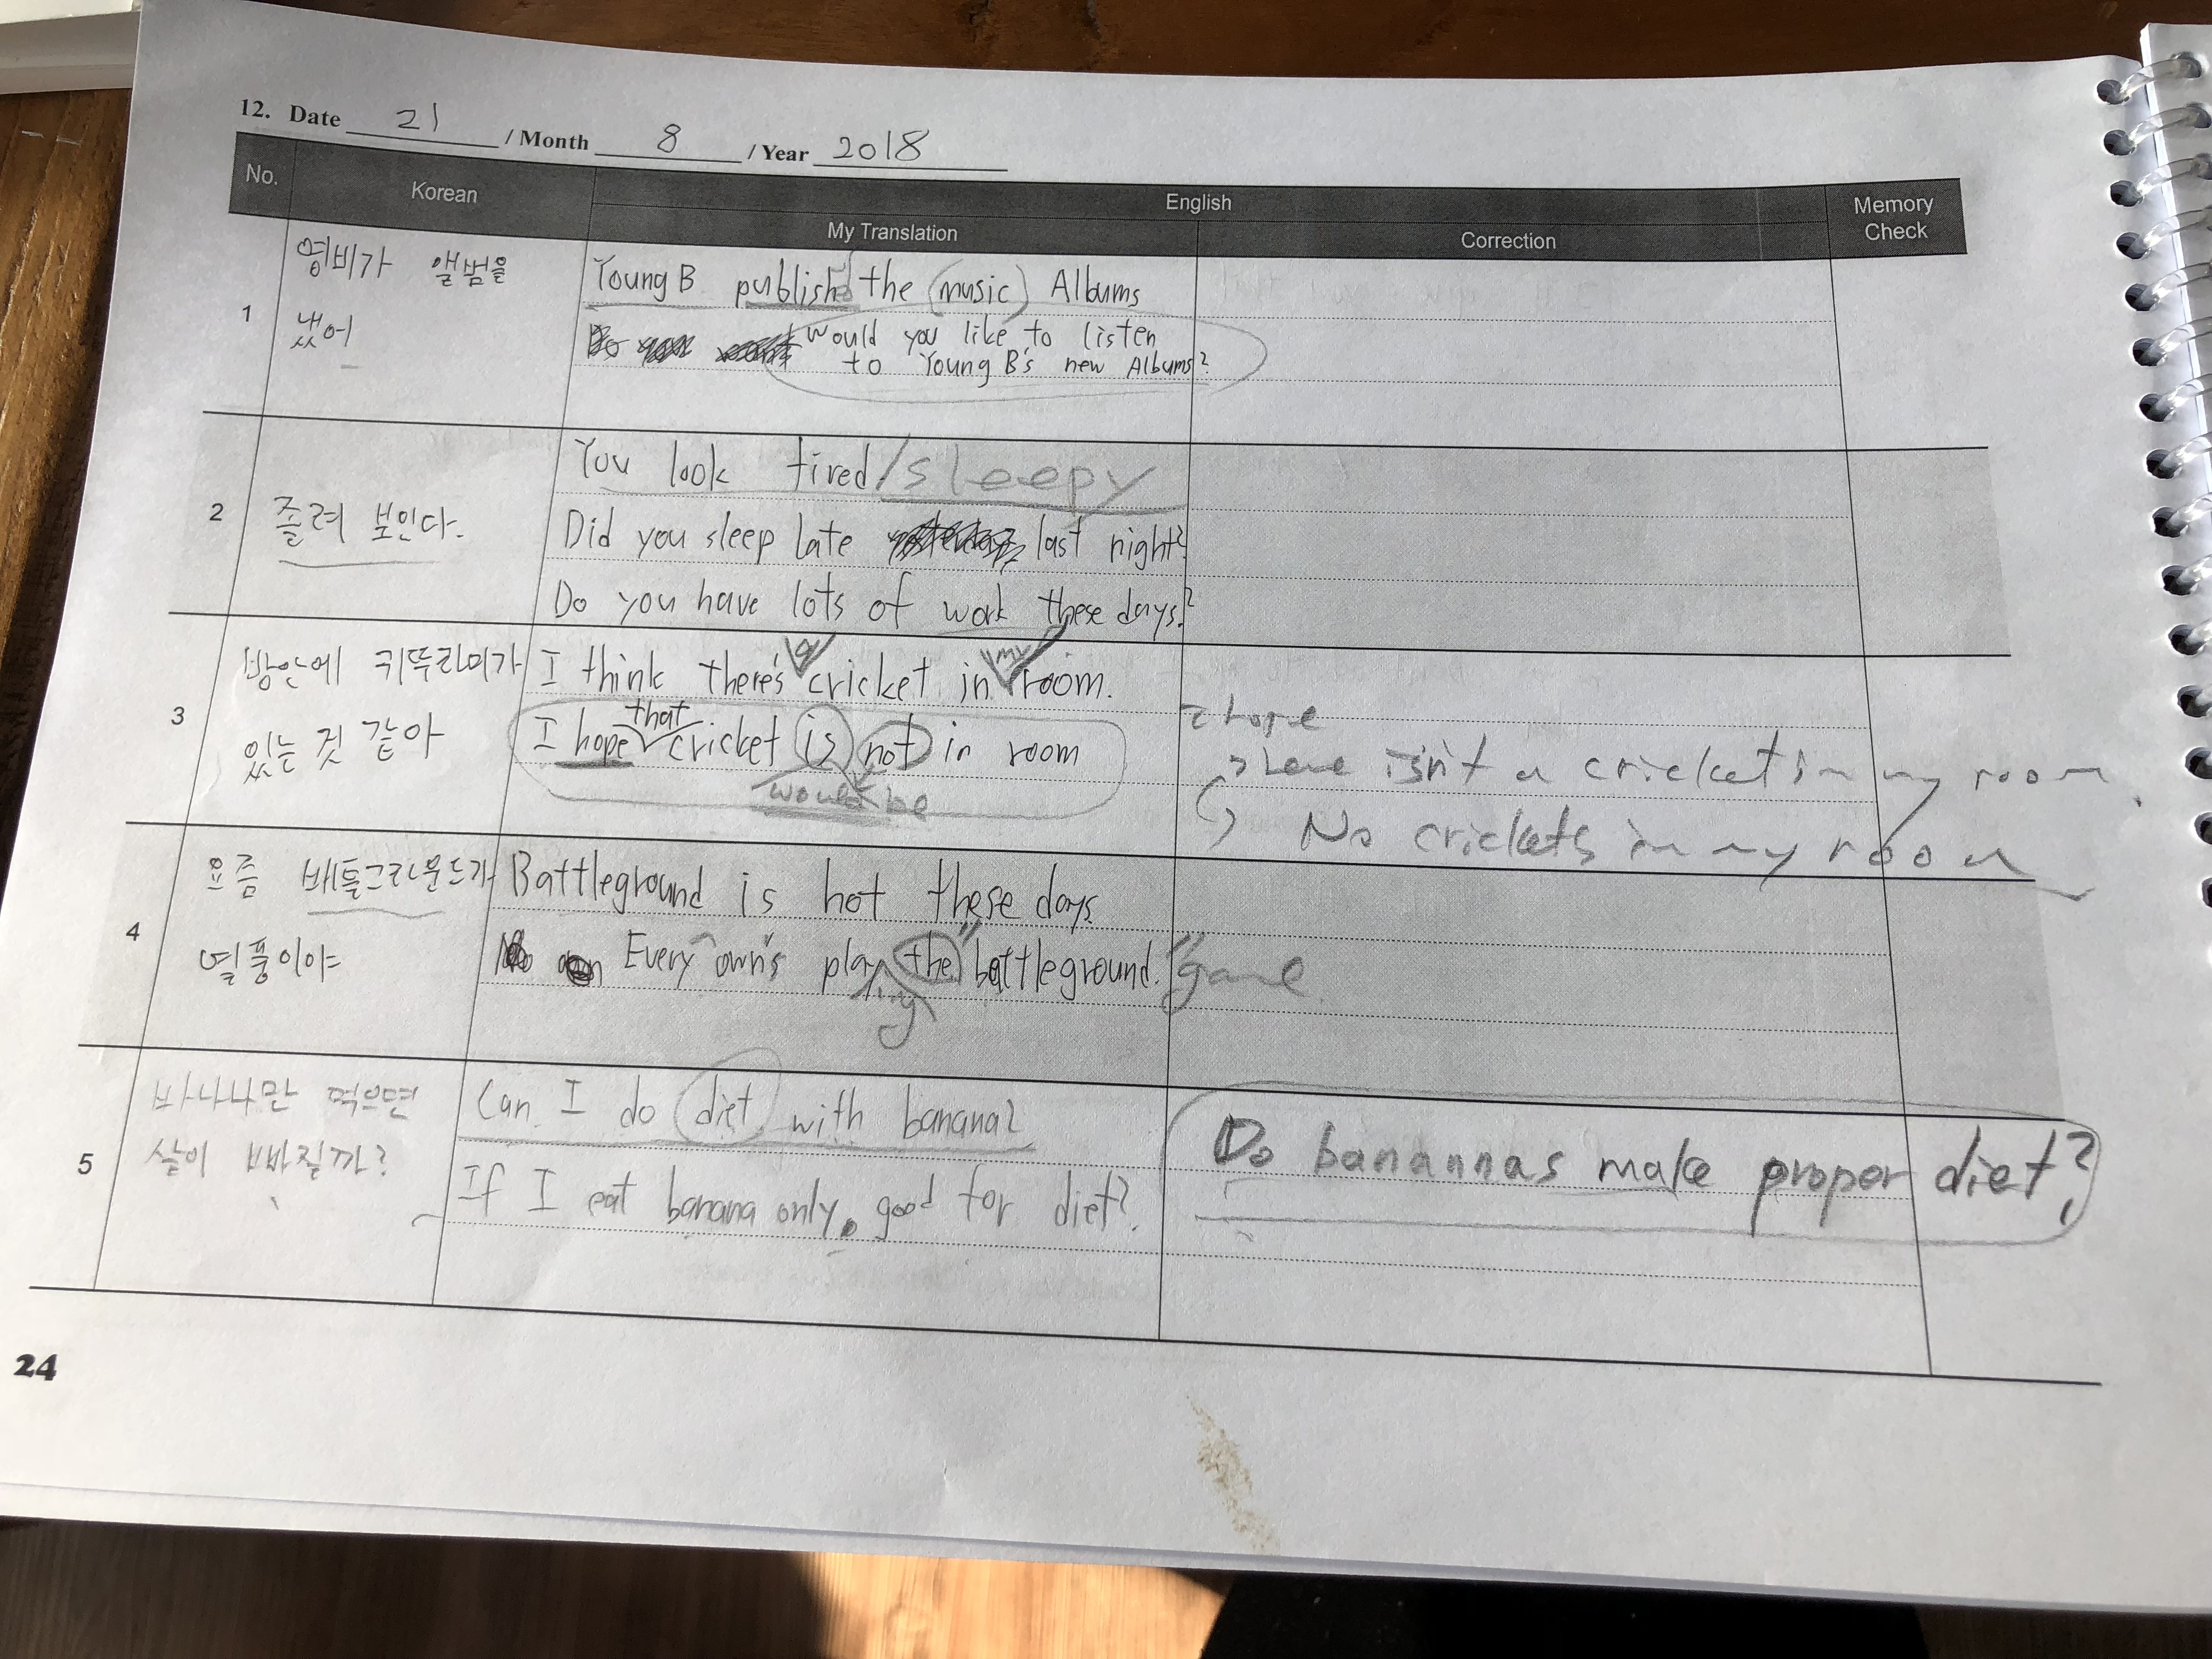 12. Date 21 / Month 8 / Year 2018
No. Korean English Memory Check
My Translation Correction
1
영비가 앨범을
냈어
Young B publish the music Albums
Would you like to listen
to Young B's new Albums?
2
졸려 보인다.
You look tired/sleepy
Did you sleep late last night?
Do you have lots of work these days?
3
방안에 귀뚜라미가
있는 것 같아
I think there's a cricket in my room.
I hope that cricket is not in room
would be
hope
isn't a crickets in my room.
No crickets in my room
4
요즘 배틀그라운드가
열풍이야
Battleground is hot these days.
Every own's play the "battleground." game
ing
5
바나나만 먹으면
살이 빠질까?
Can I do diet with banana?
If I eat banana only, good for diet?
Do banannas make proper diet?
24